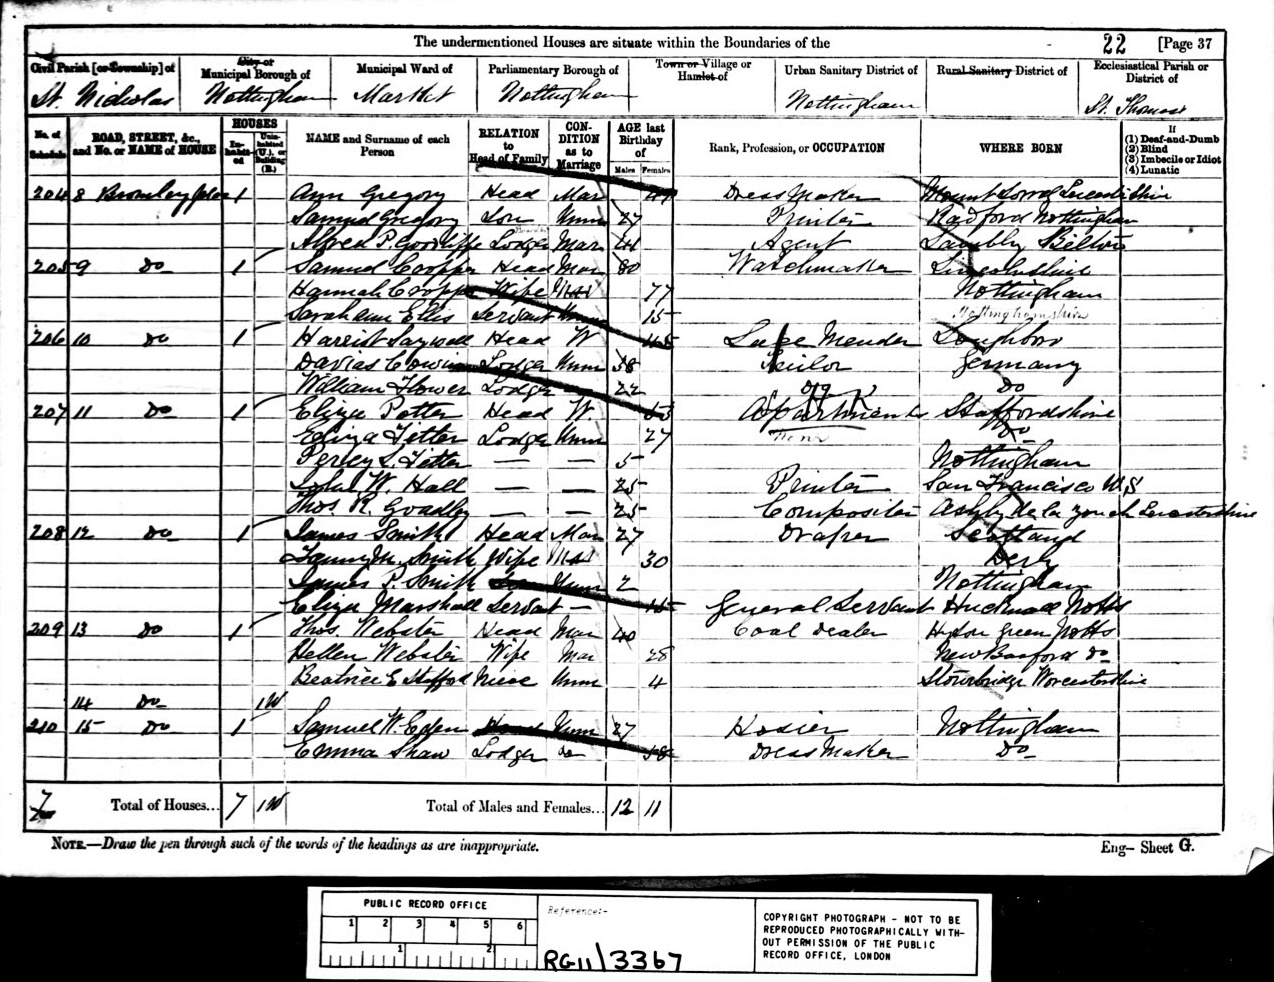 The undermentioned Houses are situate within the Boundaries of the 22 [Page 37
Civil Parish [or Township] of City or Municipal Borough of Municipal Ward of Parliamentary Borough of Town or Village or Hamlet of Urban Sanitary District of Rural Sanitary District of Ecclesiastical Parish or District of
St. Nicholas Nottingham Market Nottingham Nottingham St. Thomas
No. of Schedule ROAD, STREET, &c., and No. or NAME of HOUSE HOUSES Inhabited Uninhabited (U.), or Building (B.) NAME and Surname of each Person RELATION to Head of Family CONDITION as to Marriage AGE last Birthday of Males Females Rank, Profession, or OCCUPATION WHERE BORN If (1) Deaf-and-Dumb (2) Blind (3) Imbecile or Idiot (4) Lunatic
204 8 Bromley place 1 Ann Gregory Head Mar Dress Maker Mount Sorrel Leicestershire
Samuel Gregory Son Unm 27 Printer Radford Nottingham
Alfred P. Lodger Mar 41 Agent
205 9 Do 1 Samuel Cropper Head Mar 80 Watchmaker Lincolnshire
Hannah Cropper Wife Mar 77 Nottingham
Sarah Ann Ellis Servant Unm 15 Nottinghamshire
206 10 Do 1 Harriet Saywell Head W Lace Mender Loughboro
Davias Lodger Unm 38 Tailor Germany
William Flower Lodger 22 Do
207 11 Do 1 Eliza Potter Head W 53 Apartments Staffordshire
Eliza Titter Lodger Unm 27 None Do
Percy S. Titter — — 5 Nottingham
John W. Hall — — 25 Printer San Francisco U.S
Thos. R. Goadley — — 25 Compositor Ashby de la Zouch Leicestershire
208 12 Do 1 James Smith Head Mar 27 Draper Scotland
Fanny M. Smith Wife Mar 30 Derby
James P. Smith Son Unm 2 Nottingham
Eliza Marshall Servant — 15 General Servant Hucknall Notts
209 13 Do 1 Thos. Webster Head Mar 40 Coal Dealer Hyson Green Notts
Hellen Webster Wife Mar 28 New Basford Do
Beatrice E Stafford Niece Unm 4 Stourbridge Worcestershire
14 Do
210 15 Do 1 Samuel W. Eden Head Unm 27 Hosier Nottingham
Emma Shaw Lodger do 38 Dress Maker Do
7 Total of Houses... 7 Total of Males and Females... 12 11
NOTE.—Draw the pen through such of the words of the headings as are inappropriate. Eng- Sheet G.
PUBLIC RECORD OFFICE
1 2 3 4 5 6
1 2
Reference:-
RG11/3367
COPYRIGHT PHOTOGRAPH - NOT TO BE
REPRODUCED PHOTOGRAPHICALLY WITH-
OUT PERMISSION OF THE PUBLIC
RECORD OFFICE, LONDON